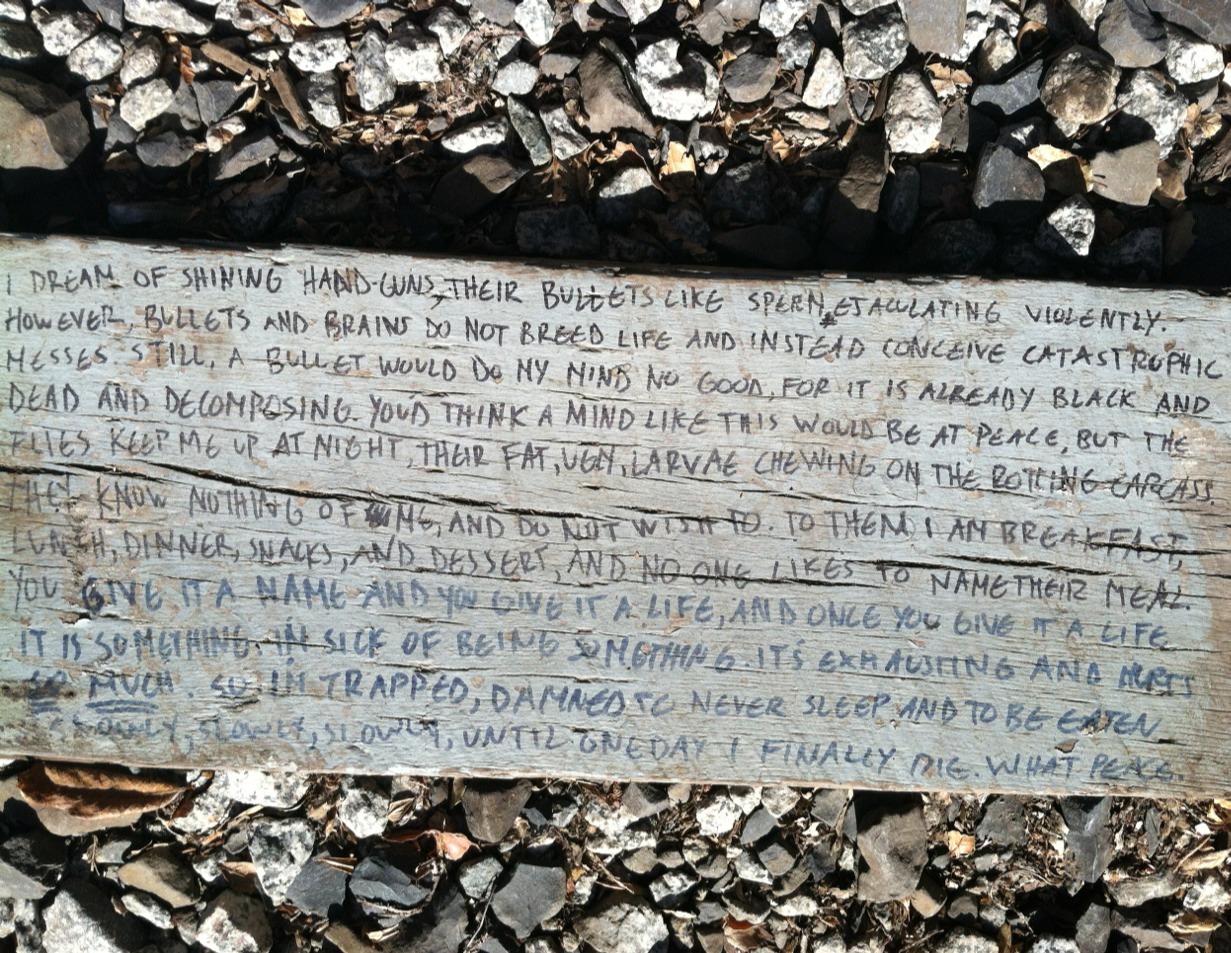 I DREAM OF SHINING HAND-GUNS, THEIR BULLETS LIKE SPERM, EJACULATING VIOLENTLY.
HOWEVER, BULLETS AND BRAINS DO NOT BREED LIFE AND INSTEAD CONCEIVE CATASTROPHIC
MESSES. STILL, A BULLET WOULD DO MY MIND NO GOOD, FOR IT IS ALREADY BLACK AND
DEAD AND DECOMPOSING. YOU'D THINK A MIND LIKE THIS WOULD BE AT PEACE, BUT THE
FLIES KEEP ME UP AT NIGHT, THEIR FAT, UGLY, LARVAE CHEWING ON THE ROTTING CARCASS.
THEY KNOW NOTHING OF ME, AND DO NOT WISH TO. TO THEM, I AM BREAKFAST,
LUNCH, DINNER, SNACKS, AND DESSERT, AND NO ONE LIKES TO NAME THEIR MEAL.
YOU GIVE IT A NAME AND YOU GIVE IT A LIFE, AND ONCE YOU GIVE IT A LIFE
IT IS SOMETHING. I'M SICK OF BEING SOMETHING. IT'S EXHAUSTING AND HURTS
SO MUCH. SO I'M TRAPPED, DAMNED TO NEVER SLEEP AND TO BE EATEN
SLOWLY, SLOWLY, SLOWLY, UNTIL ONE DAY I FINALLY DIE. WHAT PEACE.